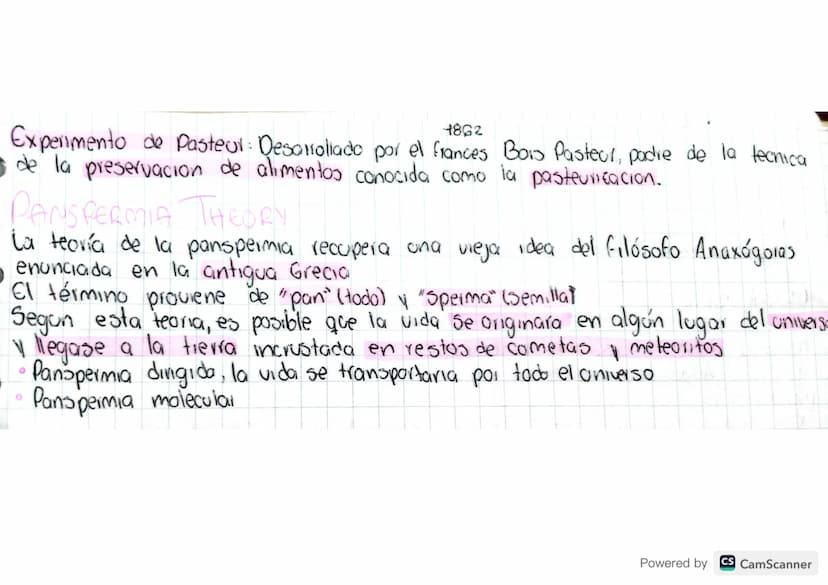 1862
Experimento de Pasteur: Desarrollado por el frances Bois Pasteur, padre de la tecnica
de la preservacion de alimentos conocida como la pasteurizacion.
PANSPERMIA THEORY
La teoría de la panspermia recupera una vieja idea del filósofo Anaxágoras
enunciada en la antigua Grecia
El término proviene de "pan" (todo) y "sperma" (semilla)
Segun esta teoria, es posible que la vida se originara en algún lugar del universo
y llegase a la tierra incrustada en restos de cometas y meteoritos
• Panspermia dirigida, la vida se transportaria por todo el universo
• Panspermia molecular
Powered by CS CamScanner